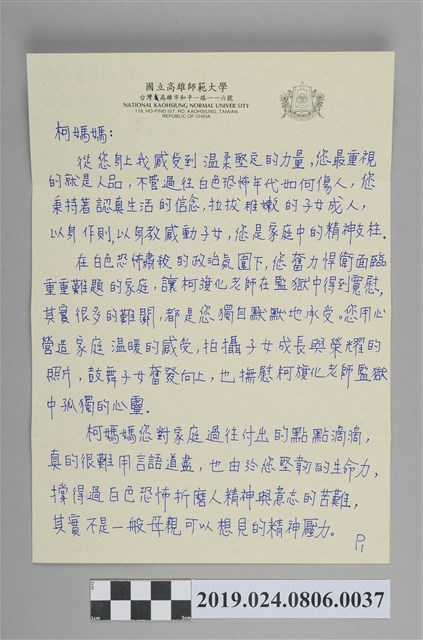 國立高雄師範大學
台灣高雄市和平一路一一六號
NATIONAL KAOHSIUNG NORMAL UNIVERSITY
116, HO-PING 1ST. RD. KAOHSIUNG, TAIWAN
REPUBLIC OF CHINA
柯媽媽:
從您身上我感受到溫柔堅定的力量,您最重視
的就是人品,不管過往白色恐怖年代如何傷人,您
秉持著認真生活的信念,拉拔稚嫩的子女成人,
以身作則,以身教感動子女,您是家庭中的精神支柱。
在白色恐怖肅殺的政治氛圍下,您奮力悍衛面臨
重重難題的家庭,讓柯旗化老師在監獄中得到寬慰,
其實很多的難關,都是您獨自默默地承受。您用心
營造家庭溫暖的感受,拍攝子女成長與榮耀的
照片,鼓舞子女奮發向上,也撫慰柯旗化老師監獄
中孤獨的心靈。
柯媽媽您對家庭過往付出的點點滴滴,
真的很難用言語道盡,也由於您堅韌的生命力,
撐得過白色恐怖折磨人精神與意志的苦難,
其實不是一般母親可以想見的精神壓力。
P1
2019.024.0806.0037